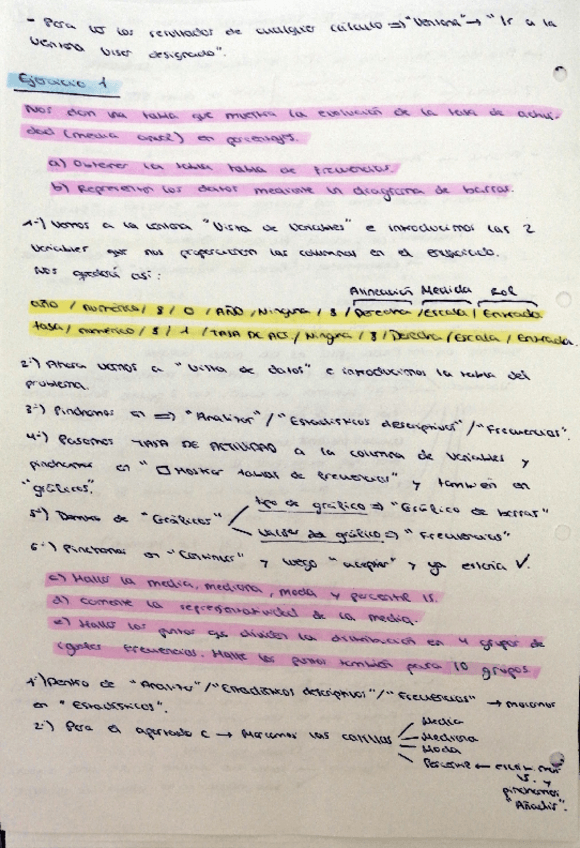 - Para ver los resultados de cualquier cálculo => "Ventana" → "Ir a la
ventana visor designado".
Ejercicio 1
Nos dan una tabla que muestra la evolución de la tasa de activi-
dad (media anual) en porcentajes.
a) Obtener la tabla tabla de frecuencias.
b) Representar los datos mediante un diagrama de barras.
1-) Vamos a la ventana "Vista de variables" e introducimos las 2
variables que nos proporcionan las columnas en el enunciado.
Nos quedará así:
Alineación Medida Rol
año / numérico / 8 / 0 / AÑO / Ninguna / 8 / Derecha / Escala / Entrada
tasa / numérico / 8 / 1 / TASA DE ACT. / Ninguna / 8 / Derecha / Escala / Entrada.
2-) Ahora vamos a "Vista de datos" e introducimos la tabla del
problema.
3-) Pinchamos en => "Analizar" / "Estadísticos descriptivos" / "Frecuencias".
4-) Pasamos TASA DE ACTIVIDAD a la columna de variables y
pinchamos en "□ Mostrar tablas de frecuencias" y también en
"gráficos".
5-) Dentro de "Gráficos" tipo de gráfico => "Gráfico de barras"
valores del gráfico => "Frecuencias"
6-) Pinchamos en "Continuar" y luego "aceptar" y ya estaría ✓.
c) Hallar la media, mediana, moda y percentil 15.
d) Comente la representatividad de la media.
e) Hallar los puntos que dividen la distribución en 4 grupos de
iguales frecuencias. Halle los puntos también para 10 grupos.
1-) Dentro de "Analizar" / "Estadísticos descriptivos" / "Frecuencias" → marcamos
en "Estadísticos".
2-) Para el apartado c → Marcamos las casillas Media
Mediana
Moda
Percentil ←
15 y
pinchamos
"Añadir".